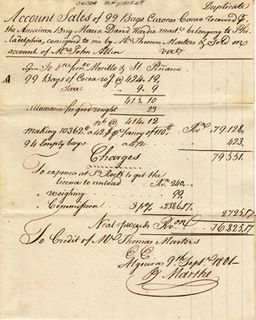 Duplicate
Account Sales of 99 Bags Caracas Cocoa received of
the American Brig Maria David Hardie mast belonging to Phi-
ladelphia, consigned to me by Mr Thomas Marters & Sold on
account of Mr John Allen
99 Bags of Cocoa 424.19
Tare 9.9
415.10
Allowance for good weight 23
414.12
making 10362 lb a 42 of 110 79,128
94 Empty bags 423
79551
Charges
To expenses at St Rock to get the
licence to unload 240
" weighing 99
" Commission 3 p% 2386.17
2725.17
Neat proceeds 76825.17
To Credit of Mr Thomas Marters
E E
Algeciras 9th Sept 1801